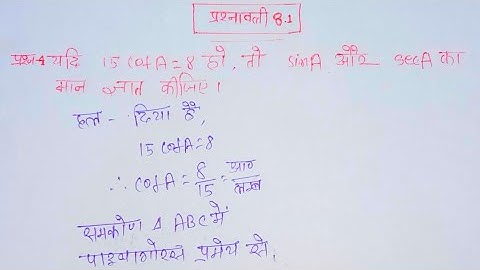 प्रश्नावली 8.1
प्रश्न-4 यदि 15 cotA = 8 हो, तो sinA और secA का
मान ज्ञात कीजिए।
हल - दिया है,
15 cotA = 8
∴ cotA = 8/15 = आधार/लम्ब
समकोण Δ ABC में
पाइथागोरस प्रमेय से,